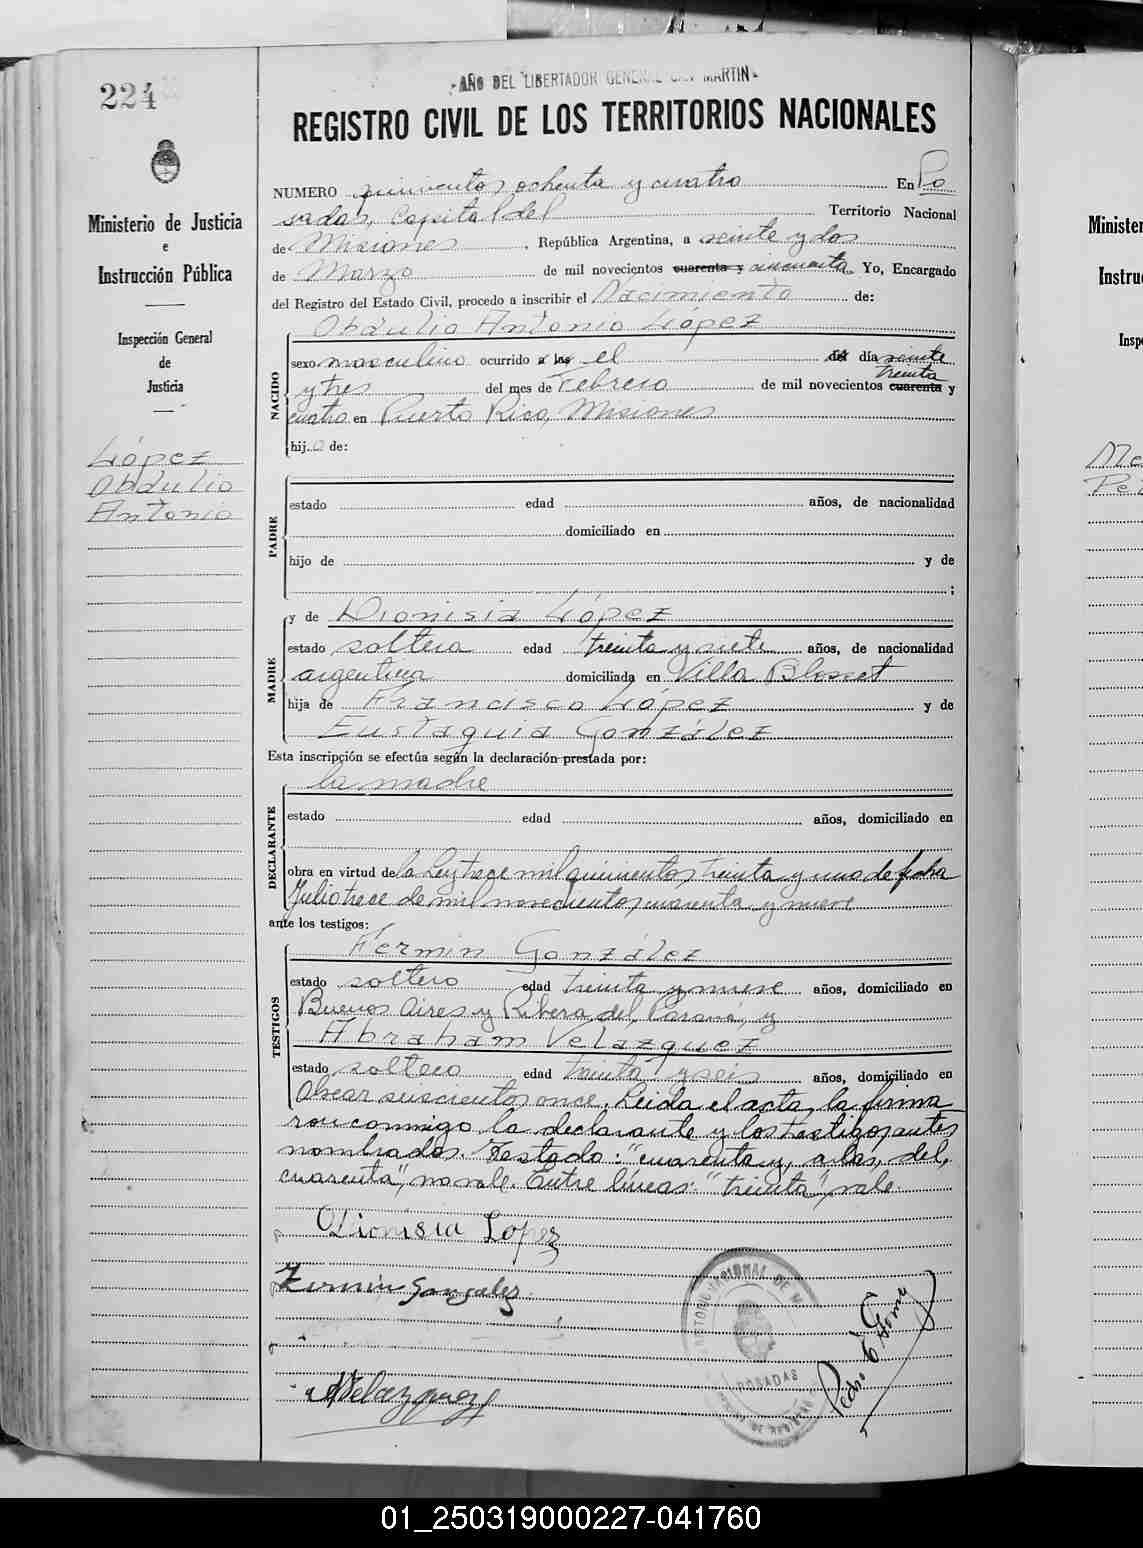 224
AÑO DEL LIBERTADOR GENERAL SAN MARTIN
REGISTRO CIVIL DE LOS TERRITORIOS NACIONALES
Ministerio de Justicia
e
Instrucción Pública
Inspección General
de
Justicia
López
Obdulio
Antonio
NUMERO quinientos ochenta y cuatro En Po
sadas, Capital del Territorio Nacional
de Misiones, República Argentina, a veinte y dos
de Marzo de mil novecientos cuarenta y cincuenta Yo, Encargado
del Registro del Estado Civil, procedo a inscribir el Nacimiento de:
Obdulio Antonio López
NACIDO
sexo masculino ocurrido a las el del día veinte
treinta
y tres del mes de Febrero de mil novecientos cuarenta y
cuatro en Puerto Rico, Misiones
hijo de:
PADRE
estado edad años, de nacionalidad
domiciliado en
hijo de y de
;
y de Dionisia López
MADRE
estado soltera edad treinta y siete años, de nacionalidad
argentina domiciliada en Villa Blosset
hija de Francisco López y de
Eustaquia González
Esta inscripción se efectúa según la declaración prestada por:
la madre
DECLARANTE
estado edad años, domiciliado en
obra en virtud de la Ley trece mil quinientos treinta y uno de fecha
Julio trece de mil novecientos cuarenta y nueve
ante los testigos:
Fermin González
TESTIGOS
estado soltero edad treinta y nueve años, domiciliado en
Buenos Aires y Ribera del Paraná, y
Abraham Velazquez
estado soltero edad treinta y seis años, domiciliado en
Alvear seiscientos once. Leida el acta, la firma
ron conmigo la declarante y los testigos antes
nombrados. Testado: "cuarenta y, a las, del,
cuarenta", no vale. Entre líneas: "treinta", vale.
Dionisia Lopez
Fermin Gonzalez
AVelazquez
Pedro E. Gome
POSADAS
Ministe
Instru
Insp
Me
Pe
01_250319000227-041760